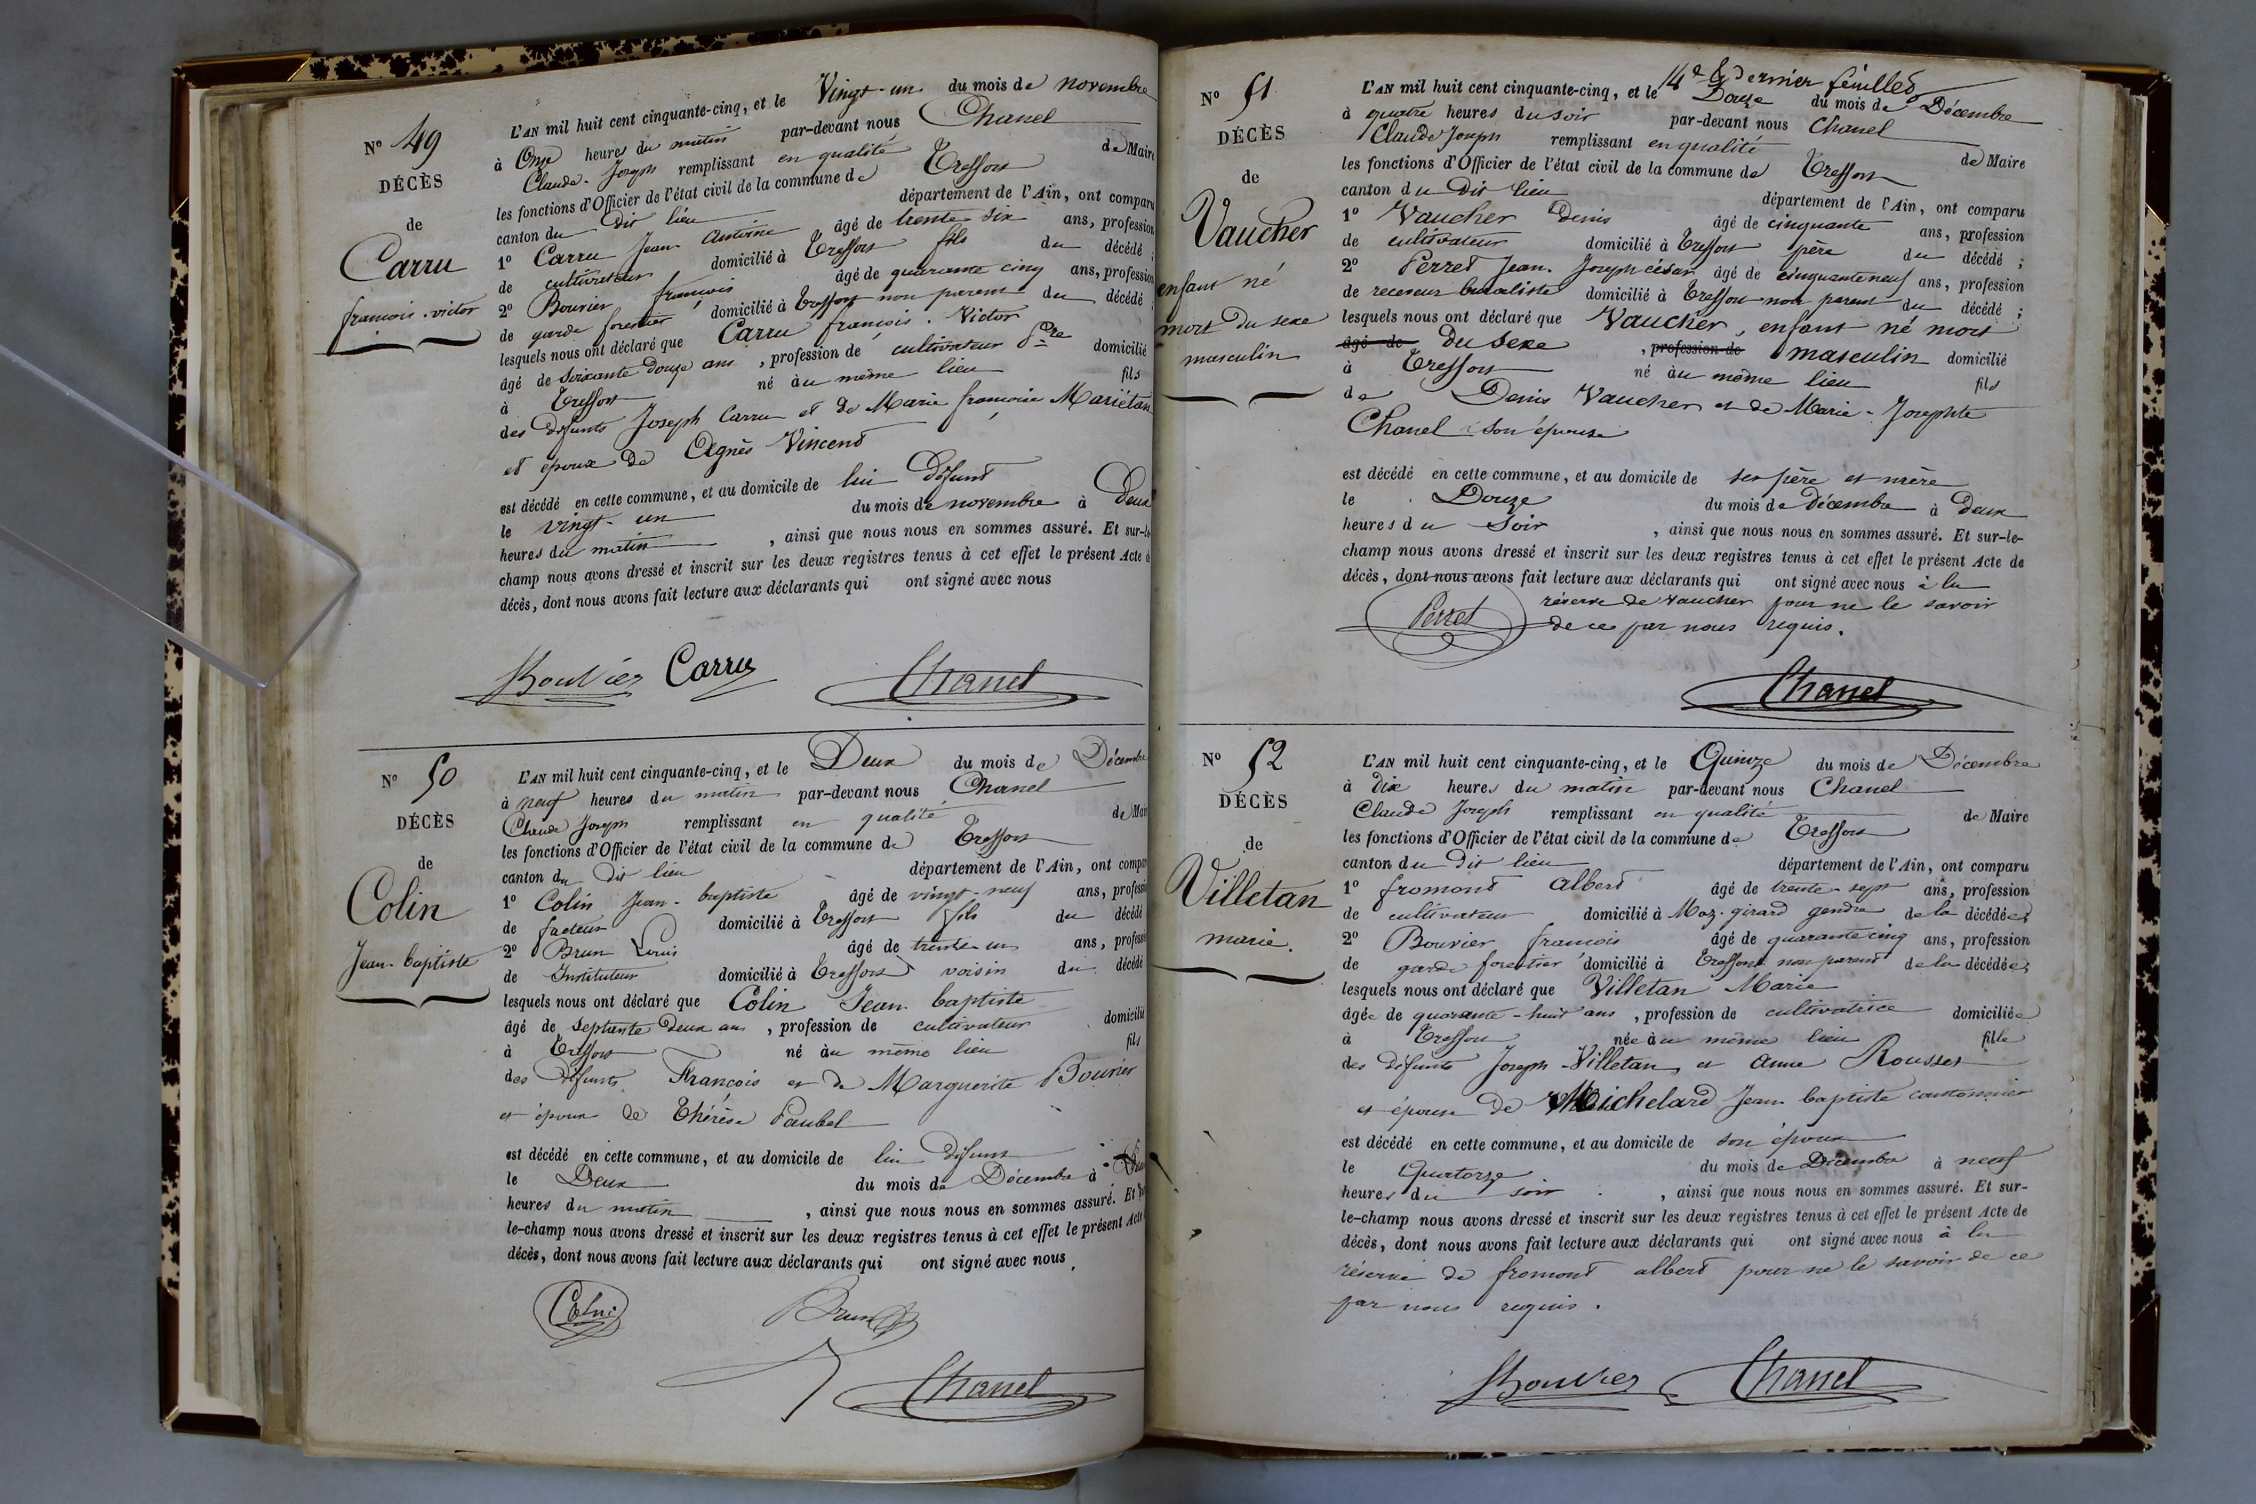 N° 49
DÉCÈS
de
Carru
francois. victor
L'AN mil huit cent cinquante-cinq, et le Vingt-un du mois de novembre
à Onze heures du matin par-devant nous Chanel
Claude-Joseph remplissant en qualité de Maire
les fonctions d'Officier de l'état civil de la commune de Treffort
canton du dit lieu département de l'Ain, ont comparu
1° Carru Jean Antoine âgé de trente six ans, profession
de cultivateur domicilié à Treffort fils du décédé ;
2° Bouvier francois âgé de quarante cinq ans, profession
de garde forestier domicilié à Treffort non parent du décédé
lesquels nous ont déclaré que Carru francois. Victor
âgé de Soixante douze ans, profession de cultivateur pre domicilié
à Treffort né au même lieu fils
des défunts Joseph Carru et de Marie francoise Mariétan
et époux de Agnès Vincent
est décédé en cette commune, et au domicile de lui Défunt
le vingt-un du mois de novembre à Deux
heures du matin, ainsi que nous nous en sommes assuré. Et sur-le
champ nous avons dressé et inscrit sur les deux registres tenus à cet effet le présent Acte d
décès, dont nous avons fait lecture aux déclarants qui ont signé avec nous
Bouvier Carru Chanel
N° 50
DÉCÈS
de
Colin
Jean-baptiste
L'AN mil huit cent cinquante-cinq, et le Deux du mois de Décembre
à neuf heures du matin par-devant nous Chanel
Claude Joseph remplissant en qualité de Mair
les fonctions d'Officier de l'état civil de la commune de Treffort
canton du dit lieu département de l'Ain, ont compar
1° Colin Jean-baptiste âgé de vingt-neuf ans, professi
de facteur domicilié à Treffort fils du décédé
2° Brun Louis âgé de trente-un ans, professi
de Instituteur domicilié à Treffort voisin du décédé
lesquels nous ont déclaré que Colin Jean baptiste
âgé de Septante Deux ans, profession de cultivateur domicilié
à Treffort né au même lieu fils
des défunts François et de Marguerite Bouvier
et époux de Thérèse Paubel
est décédé en cette commune, et au domicile de lui défunt
le Deux du mois de Décembre à
heures du matin, ainsi que nous nous en sommes assuré. Et sur
le-champ nous avons dressé et inscrit sur les deux registres tenus à cet effet le présent Acte
décès, dont nous avons fait lecture aux déclarants qui ont signé avec nous.
Colin Brun
Chanel
14e & Dernier feuillet
N° 51
DÉCÈS
de
Vaucher
enfant né
mort du sexe
masculin
L'AN mil huit cent cinquante-cinq, et le Douze du mois de Décembre
à quatre heures du soir par-devant nous Chanel
Claude Joseph remplissant en qualité de Maire
les fonctions d'Officier de l'état civil de la commune de Treffort
canton du Dit lieu département de l'Ain, ont comparu
1° Vaucher Denis âgé de cinquante ans, profession
de cultivateur domicilié à Treffort père du décédé ;
2° Perret Jean. Joseph césar âgé de cinquante neuf ans, profession
de receveur buraliste domicilié à Treffort non parent du décédé ;
lesquels nous ont déclaré que Vaucher, enfant né mort
âgé de du sexe, profession de masculin domicilié
à Treffort né au même lieu fils
de Denis Vaucher et de Marie-Josephte
Chanel son épouse
est décédé en cette commune, et au domicile de ses père et mère
le Douze du mois de Décembre à Deux
heures du Soir, ainsi que nous nous en sommes assuré. Et sur-le-
champ nous avons dressé et inscrit sur les deux registres tenus à cet effet le présent Acte de
décès, dont nous avons fait lecture aux déclarants qui ont signé avec nous à la
réserve de Vaucher pour ne le savoir
de ce par nous requis.
Perret
Chanel
N° 52
DÉCÈS
de
Villetan
marie.
L'AN mil huit cent cinquante-cinq, et le Quinze du mois de Décembre
à Dix heures du matin par-devant nous Chanel
Claude Joseph remplissant en qualité de Maire
les fonctions d'Officier de l'état civil de la commune de Treffort
canton du Dit lieu département de l'Ain, ont comparu
1° fromont Albert âgé de trente-sept ans, profession
de cultivateur domicilié à Moz-girard gendre de la décédée ;
2° Bouvier francois âgé de quarante cinq ans, profession
de garde forestier domicilié à Treffort non parent de la décédée ;
lesquels nous ont déclaré que Villetan Marie
âgée de quarante-huit ans, profession de cultivatrice domiciliée
à Treffort née au même lieu fille
des défunts Joseph Villetan et Anne Rousset
et épouse de Michelard Jean baptiste cantonnier
est décédé en cette commune, et au domicile de son époux
le Quatorze du mois de Décembre à neuf
heures du soir, ainsi que nous nous en sommes assuré. Et sur-
le-champ nous avons dressé et inscrit sur les deux registres tenus à cet effet le présent Acte de
décès, dont nous avons fait lecture aux déclarants qui ont signé avec nous à la
réserve de fromont albert pour ne le savoir de ce
par nous requis.
Bouvier Chanel